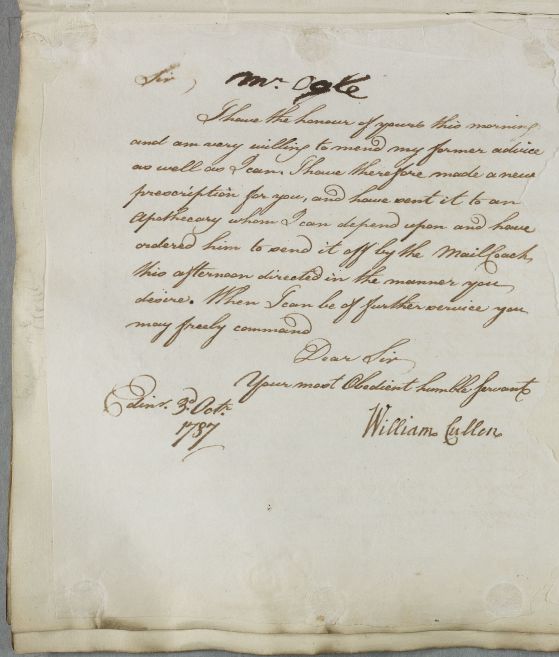 Sir, Mr. Ogle
I have the honour of yours this morning
and am very willing to mend my former advice
as well as I can. I have therefore made a new
prescription for you, and have sent it to an
Apothecary whom I can depend upon and have
ordered him to send it off by the Mail Coach
this afternoon directed in the manner you
desire. When I can be of further service you
may freely command
Dear Sir
Your most Obedient humble Servant
Edinr. 3d. Octr.
1787
William Cullen